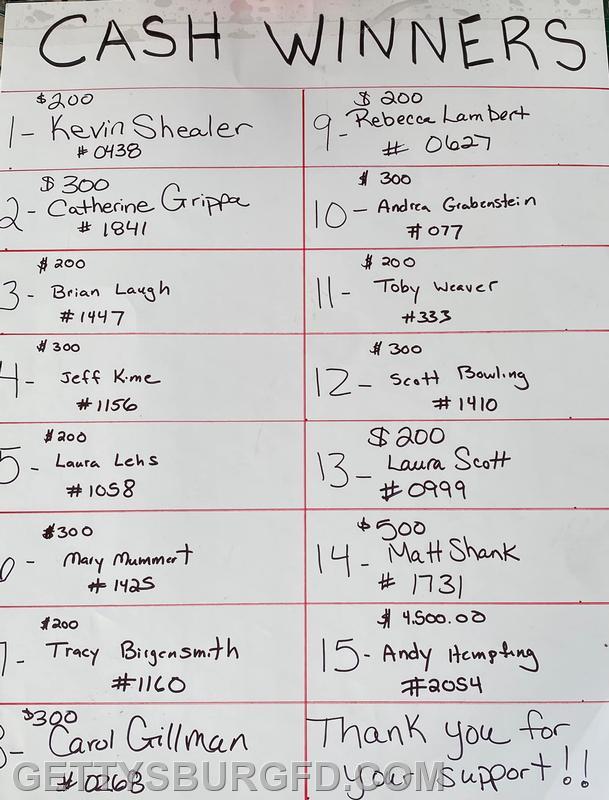 CASH WINNERS
$200
1- Kevin Shealer
# 0438
$300
2- Catherine Grippa
# 1841
$200
3- Brian Laugh
#1447
$300
4- Jeff Kime
#1156
$200
5- Laura Lehs
#1058
$300
6- Mary Mummert
#1425
$200
7- Tracy Birgensmith
#1160
$300
8- Carol Gillman
# 0268
$ 200
9- Rebecca Lambert
# 0627
$ 300
10- Andrea Grabenstein
#077
$ 200
11- Toby Weaver
#333
$ 300
12- Scott Bowling
# 1410
$ 200
13- Laura Scott
#0999
$500
14- Matt Shank
# 1731
$ 4,500.00
15- Andy Hempfing
#2054
Thank you for
your support!!
GETTYSBURGFD.COM